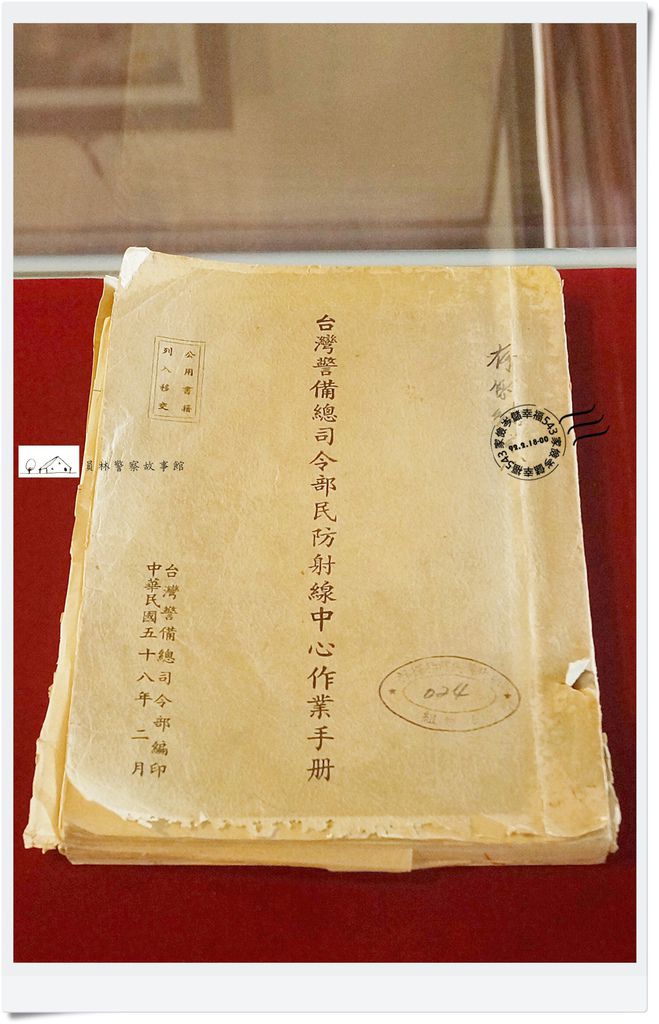 台灣警備總司令部民防射線中心作業手册
公用書籍
列入移交
台灣警備總司令部編印
中華民國五十八年二月
024
組
員林警察故事館
家儉岑儲幸福543
家儉岑儲幸福543
92.2.18-00